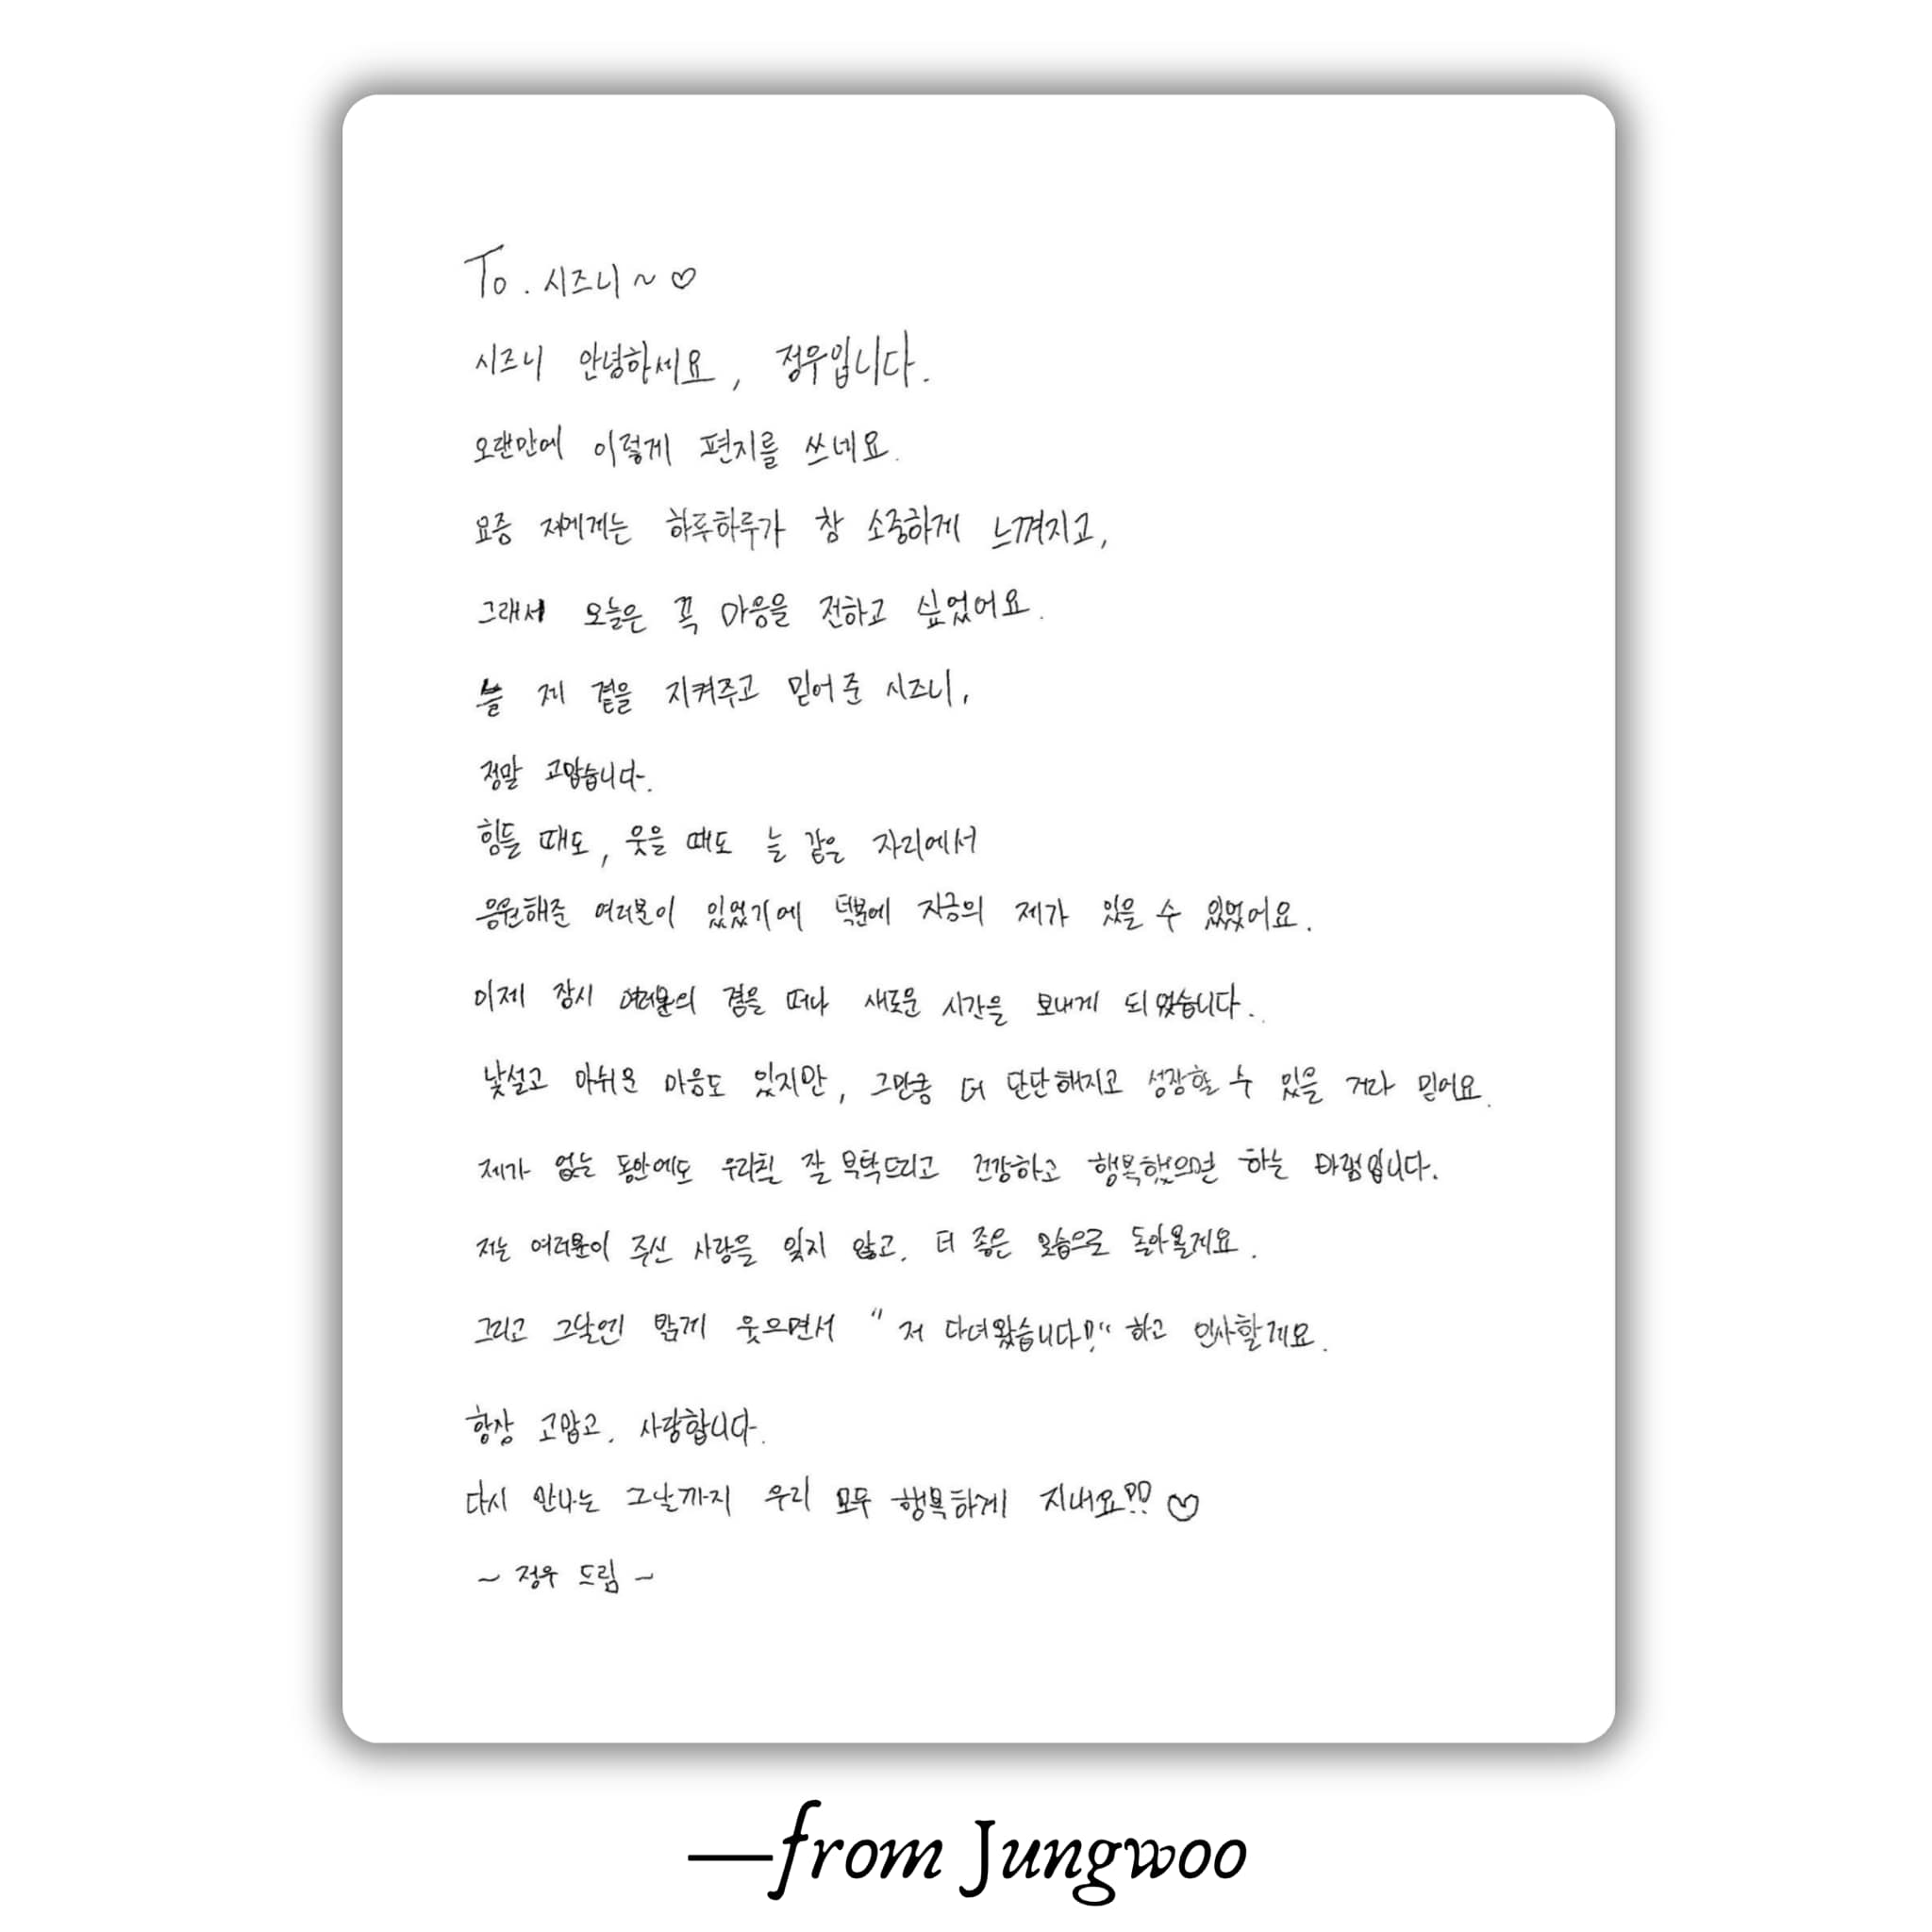 To. 시즈니~♡
시즈니 안녕하세요, 정우입니다.
오랜만에 이렇게 편지를 쓰네요.
요즘 저에게는 하루하루가 참 소중하게 느껴지고,
그래서 오늘은 꼭 마음을 전하고 싶었어요.
늘 제 곁을 지켜주고 믿어준 시즈니,
정말 고맙습니다.
힘들 때도, 웃을 때도 늘 같은 자리에서
응원해준 여러분이 있었기에 덕분에 지금의 제가 있을 수 있었어요.
이제 잠시 여러분의 곁을 떠나 새로운 시간을 보내게 되었습니다..
낯설고 아쉬운 마음도 있지만, 그만큼 더 단단해지고 성장할 수 있을 거라 믿어요.
제가 없는 동안에도 우리칠 잘 부탁드리고 건강하고 행복했으면 하는 바램입니다.
저는 여러분이 주신 사랑을 잊지 않고, 더 좋은 모습으로 돌아올게요.
그리고 그날엔 밝게 웃으면서 "저 다녀왔습니다!" 하고 인사할게요.
항상 고맙고, 사랑합니다.
다시 만나는 그날까지 우리 모두 행복하게 지내요!! ♡
~ 정우 드림 ~
—from Jungwoo